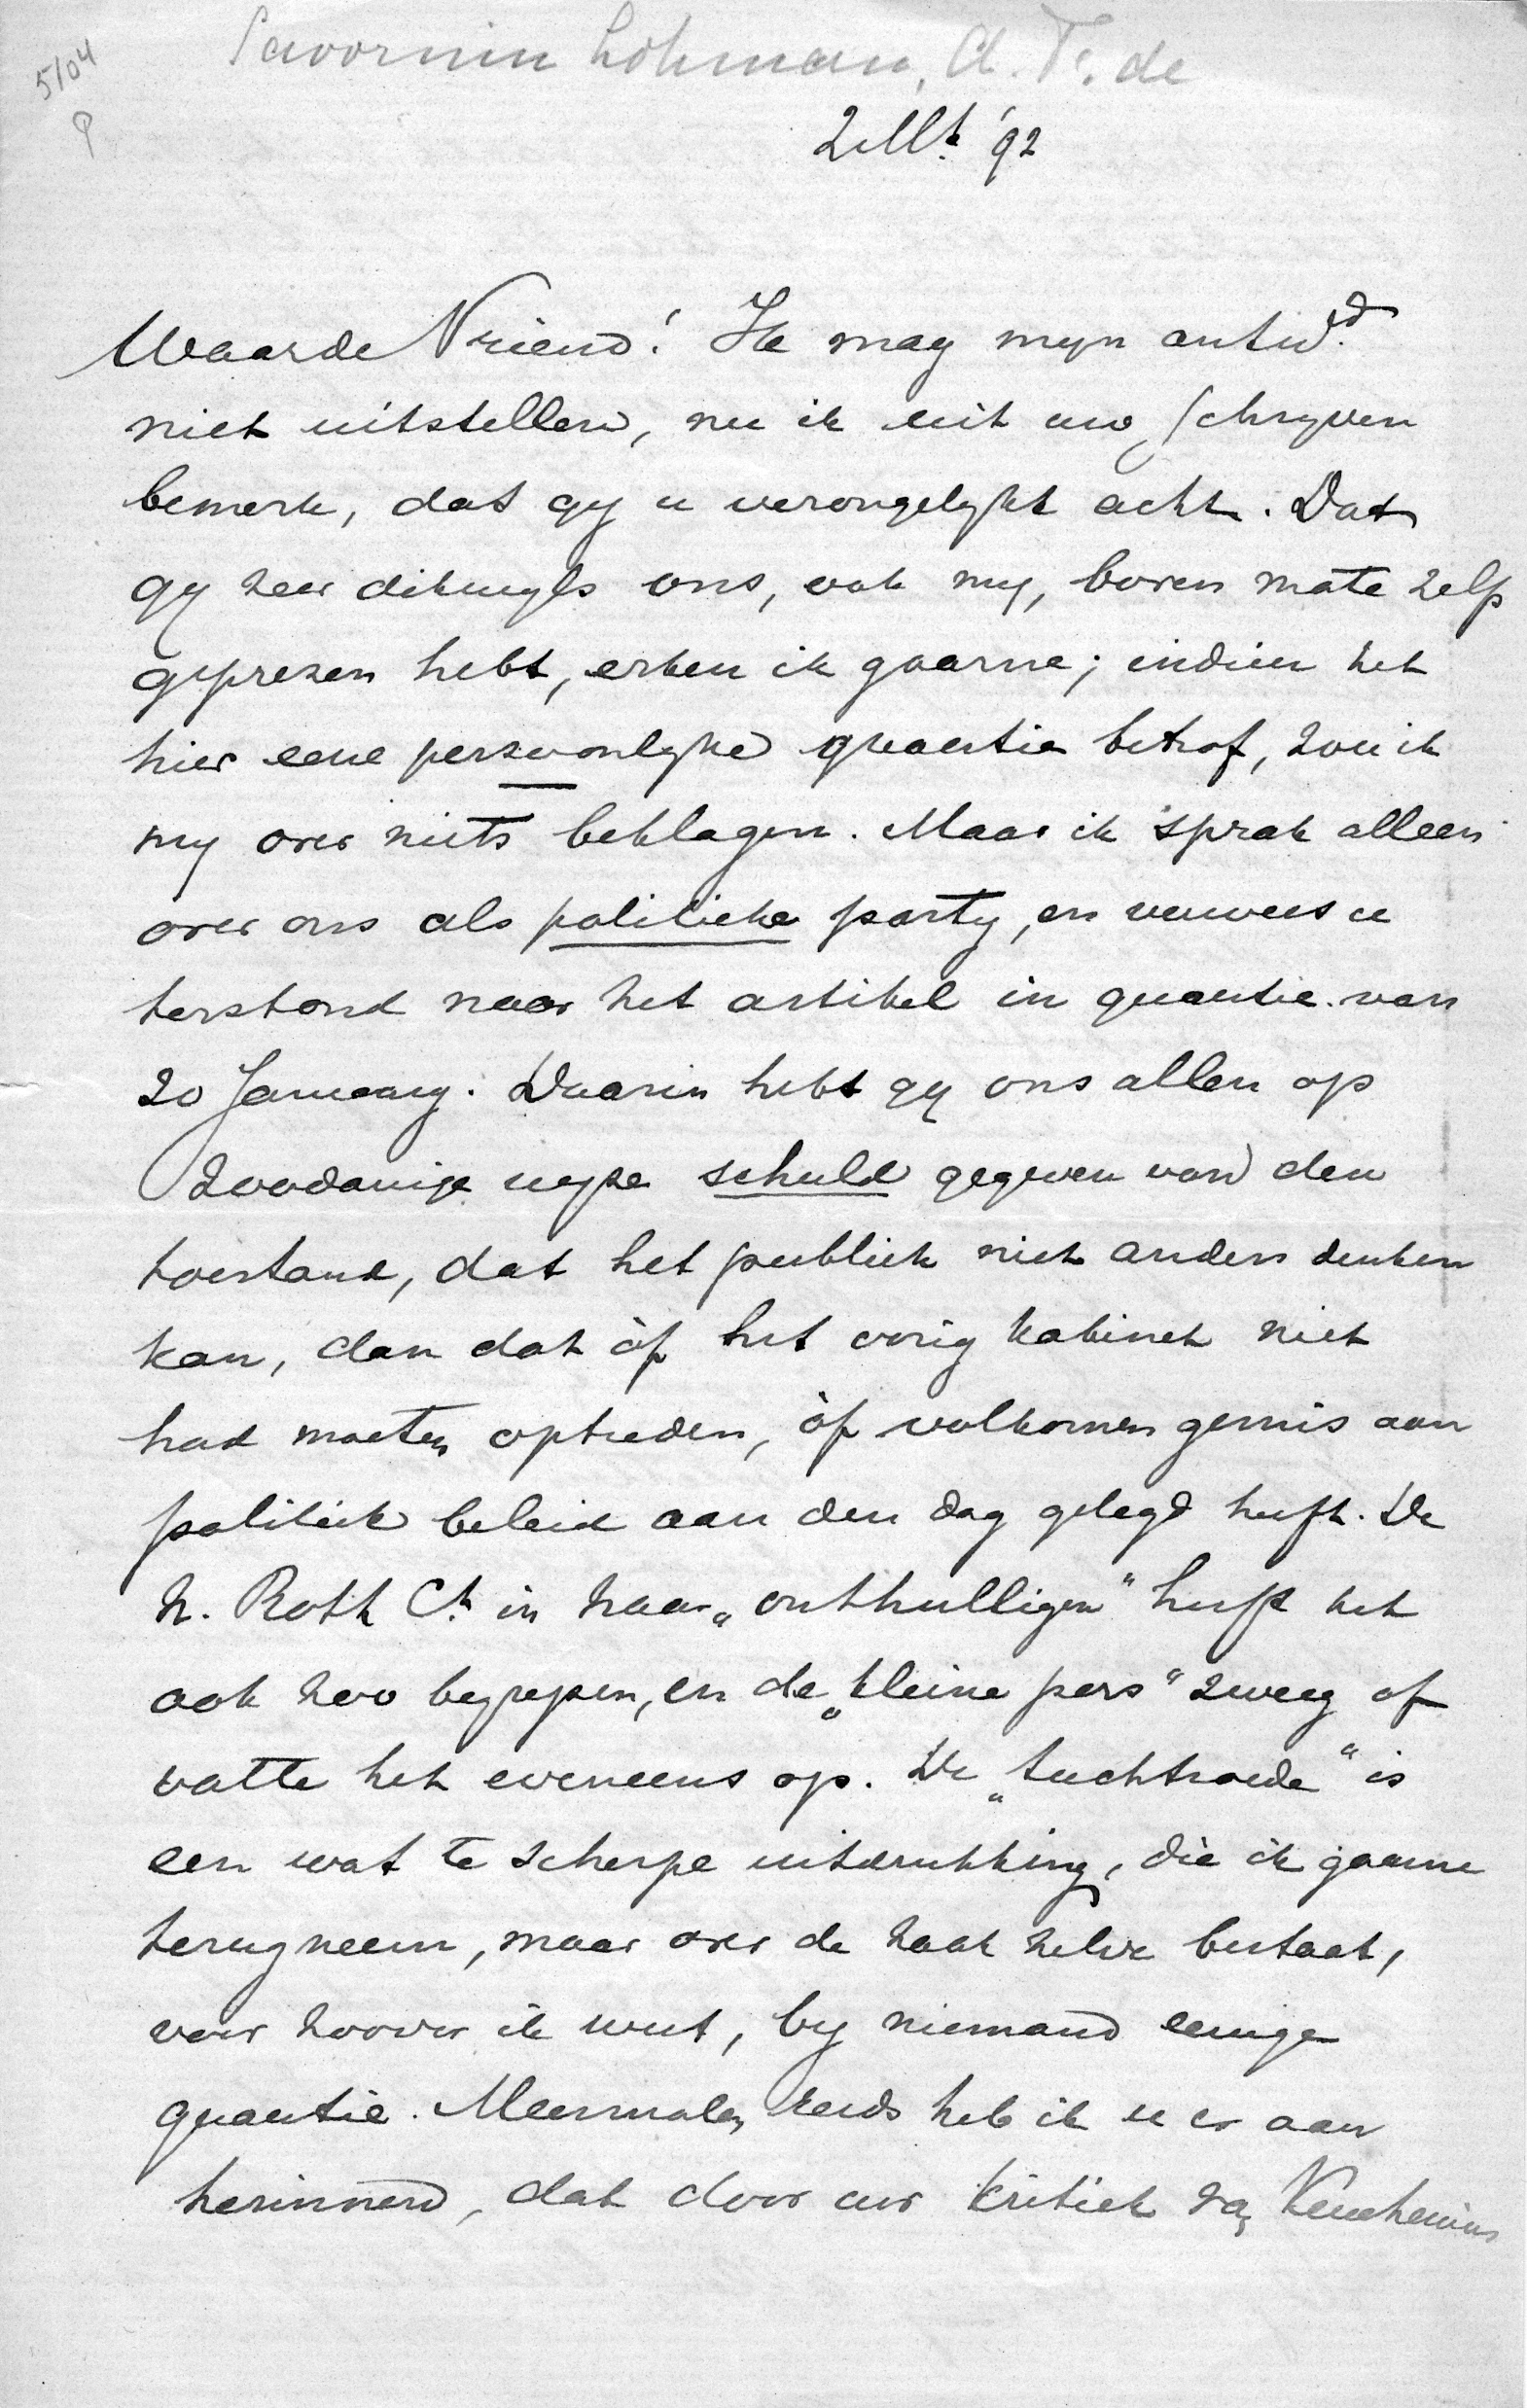 5104
Savornin Lohman, A. F. de
2 Mrt. '92
Waarde Vriend! Ik mag mijn antwd.
niet uitstellen, nu ik uit uw schrijven
bemerk, dat gij u verongelijkt acht. Dat
gij zeer dikwijls ons, ook mij, boven mate zelfs
geprezen hebt, erken ik gaarne; indien het
hier eene persoonlijke quaestie betrof, zou ik
mij over niets beklagen. Maar ik sprak alleen
over ons als politieke partij, en verwees u
terstond naar het artikel in quaestie van
20 January. Daarin hebt gij ons allen op
zoodanige wijze schuld gegeven van den
toestand, dat het publiek niet anders denken
kan, dan dat òf het vorig kabinet niet
had moeten optreden, òf volkomen gemis aan
politiek beleid aan den dag gelegd heeft. De
N. Rott. Ct. in haar „onthulligen" heeft het
ook zoo begrepen, en de „kleine pers" zweeg of
vatte het eveneens op. De „tuchtroede" is
een wat te scherpe uitdrukking, die ik gaarne
terugneem, maar over de zaak zelve bestaat,
voor zoover ik weet, by niemand eenige
quaestie. Meermalen reeds heb ik u er aan
herinnerd, dat door uw kritiek van Keuchenius